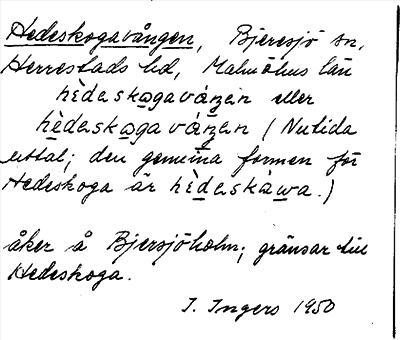 Hedeskogavången, Bjeresjö sn,
Herrestads hd, Malmöhus län
hèdaskogaváŋen eller
hèdaskogaváŋen (Nutida
uttal; den genuina formen för
Hedeskoga är hèdaskàwa.)
åker å Bjersjöholm; gränsar till
Hedeskoga.
I. Ingers 1950